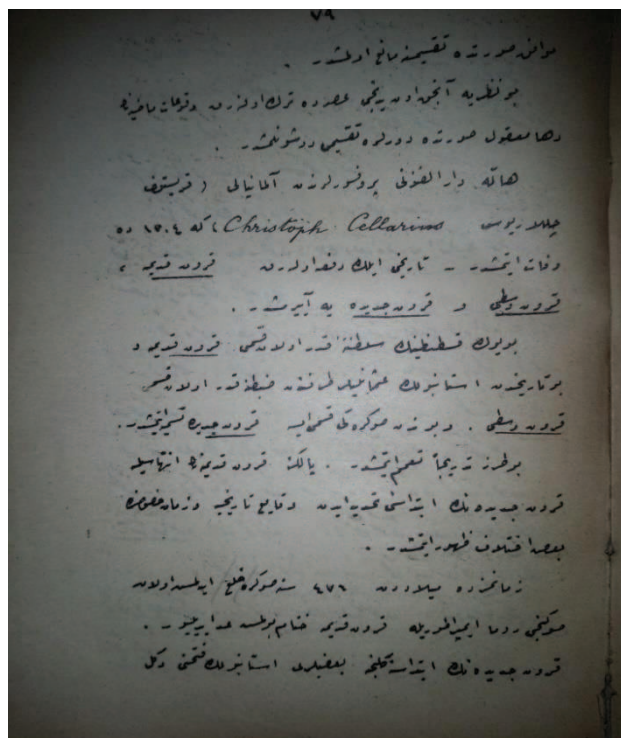 ٧٩
موافق صورتده تقسيمنه مانع اولمشدر .
بو نظريه آنجق اون يدنجى عصرده ترك اولنهرق وقوعات ماضيه نك
دها معقول صورتده دورلره تقسيمى دوشونلمشدر .
هاله دار الفنونى پروفسورلرندن آلمانيالى ( قريستوف
چللاريوس Christoph Cellarius كه ١٧٠٤ ده
وفات ايتمشدر - تاريخى ايلك دفعه اولهرق قرون قديمه ،
قرون وسطى و قرون جديده يه آييرمشدر .
بويوك قسطنطينك سلطنتنه قدر اولان قسمى قرون قديمه و
بو تاريخدن استانبولك عثمانليلر طرفندن ضبطنه قدر اولان قسمى
قرون وسطى . و بوندن صوكره كى قسمى ايسه قرون جديده تسميه ايتمشدر .
بو طرز تدريجاً تعمم ايتمشدر . يالكز قرون قديمه نك انتهاسيله
قرون جديده نك ابتداسنى تحديد ايدن وقايع تاريخيه و زمان خصوصنده
بعض اختلاف ظهور ايتمشدر .
زمانمزده ميلاددن ٤٧٦ سنه صوكره خلع ايدلمش اولان
صوكنجى روما ايمپراطوريله قرون قديمه ختام بولمش عد ايديليور .
قرون جديده نك ابتداسنه كلنجه بعضيلرى استانبولك فتحنى دكل